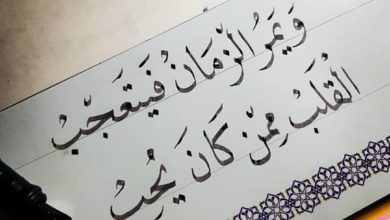 وَيَمرُ الزمَانُ فَيتَعَجّبُ
القلَبُ مِمّن كَانَ يُحبُ